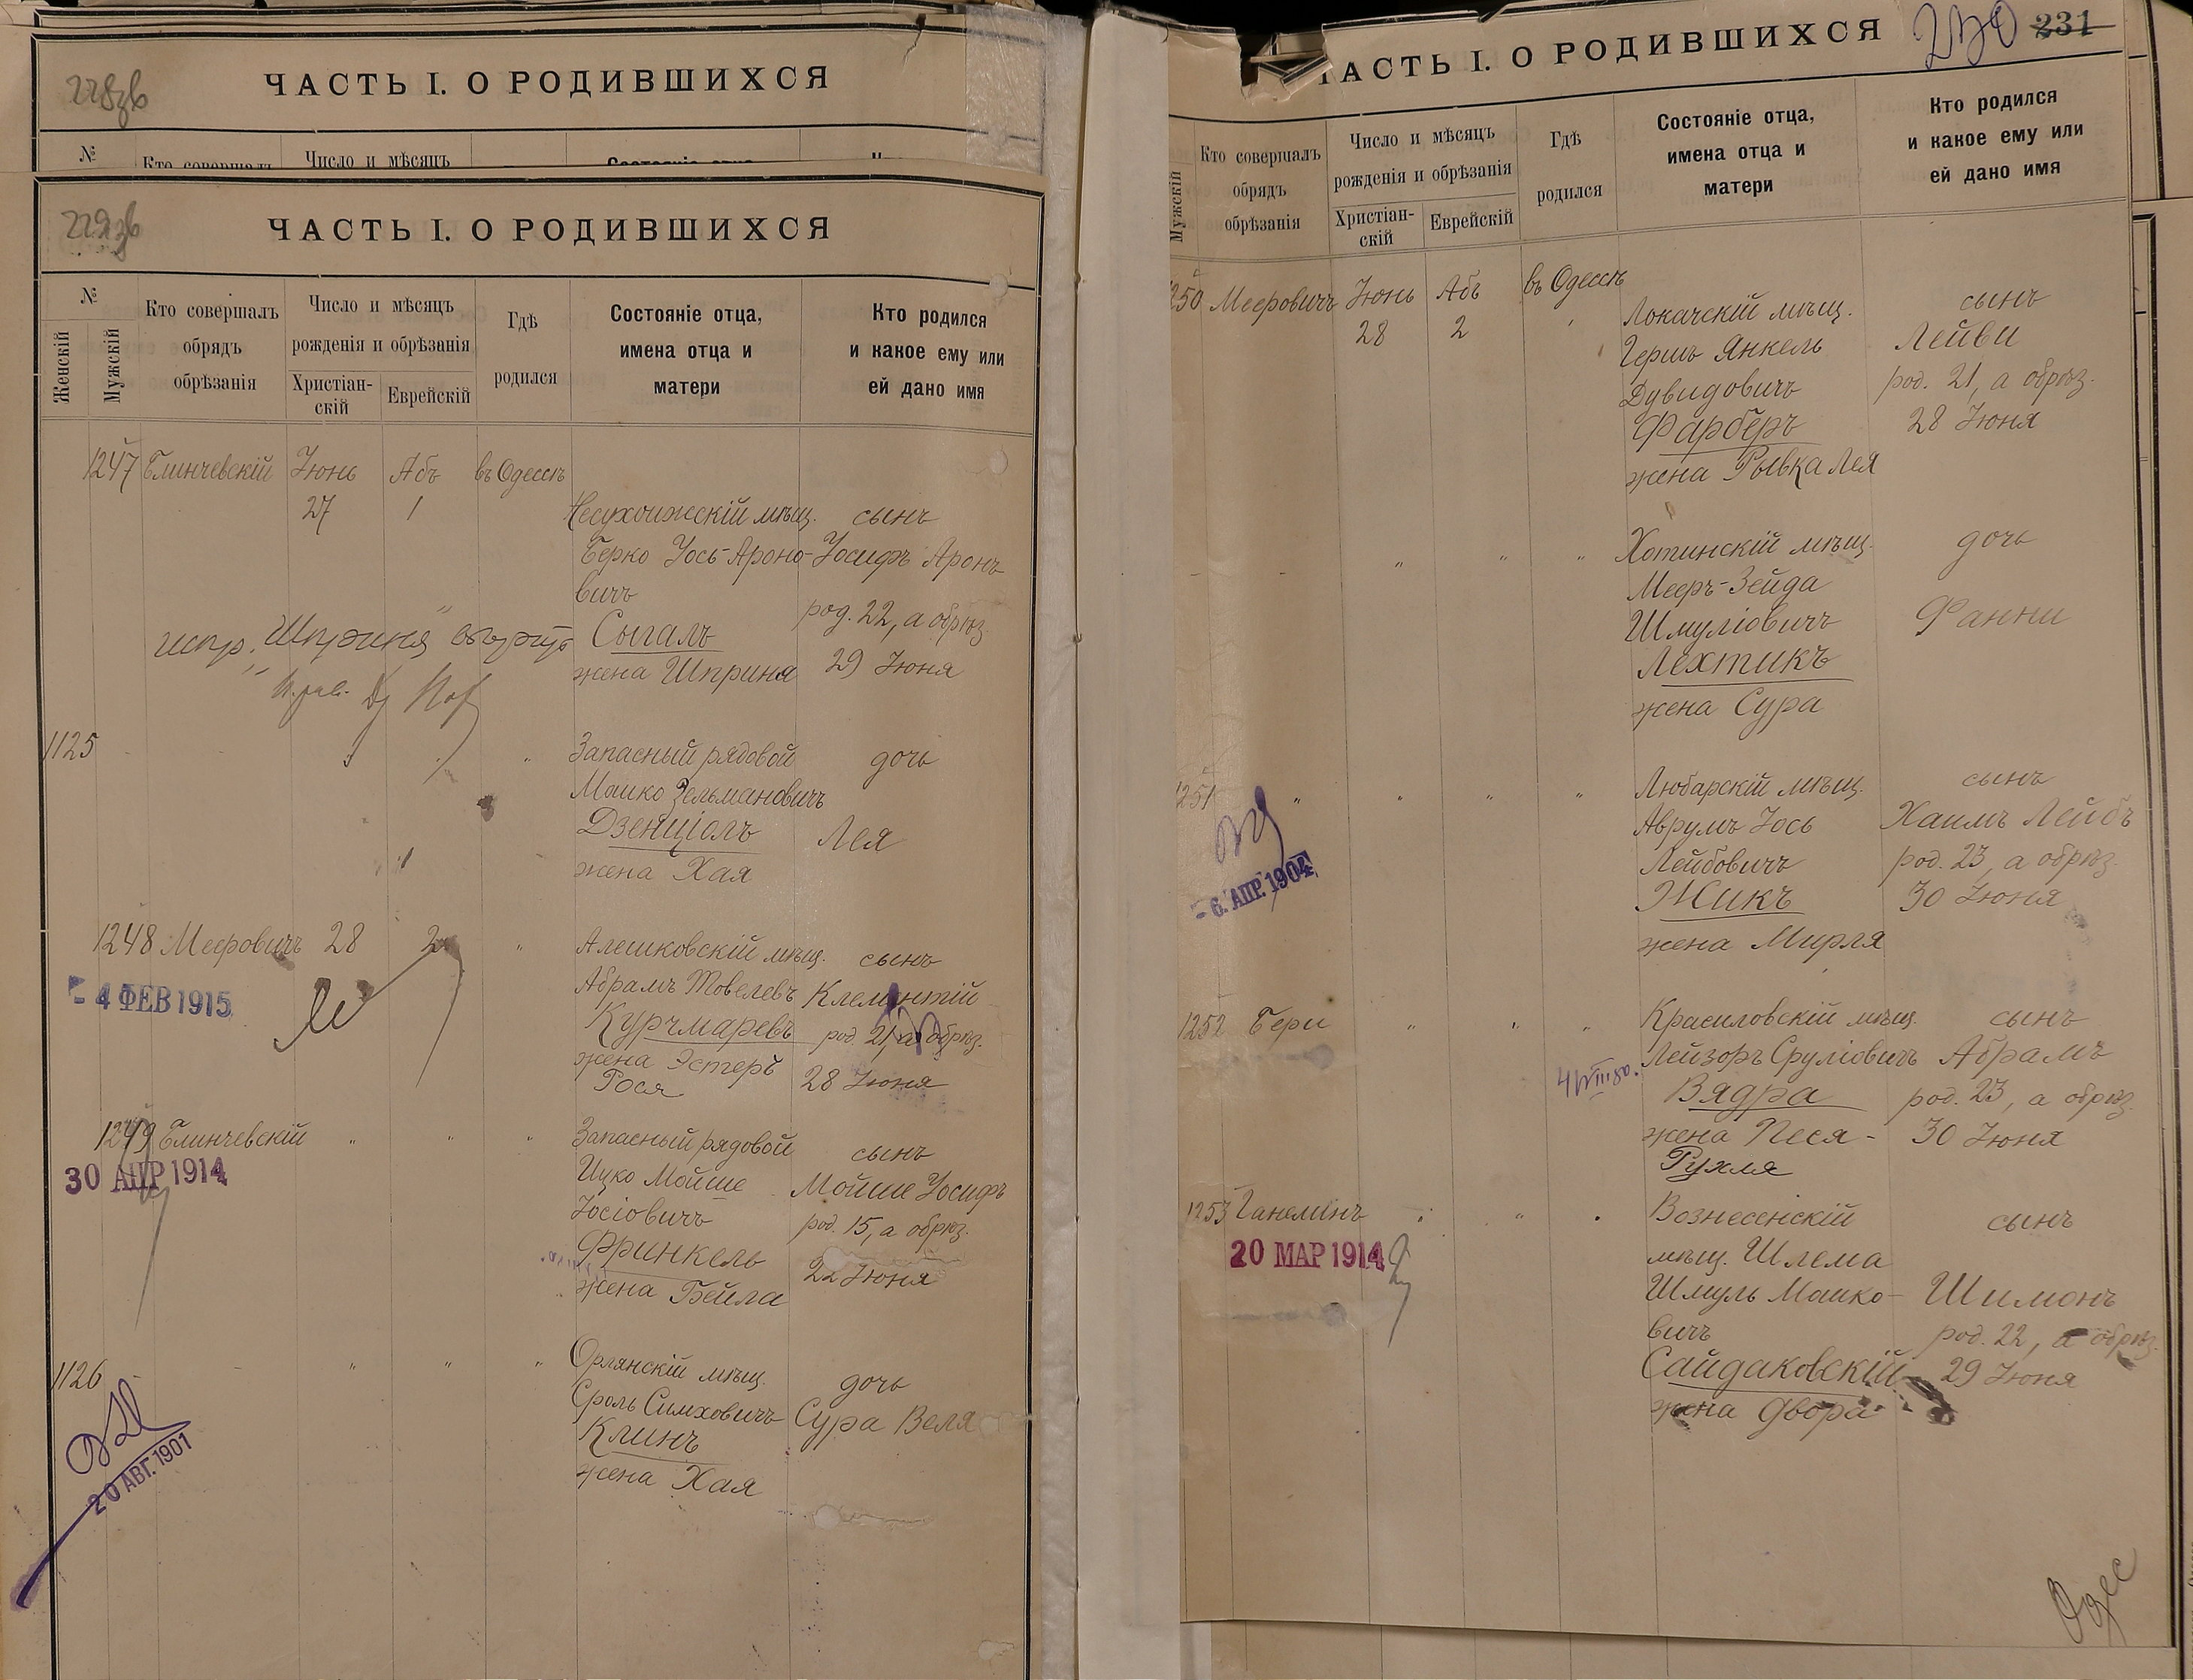 228зв
ЧАСТЬ I. О РОДИВШИХСЯ
№
Число и мѣсяцъ
229зв
ЧАСТЬ I. О РОДИВШИХСЯ
№
Женскій
Мужскій
Кто совершалъ
обрядъ
обрѣзанія
Число и мѣсяцъ
рожденія и обрѣзанія
Христіан-
скій
Еврейскій
Гдѣ
родился
Состояніе отца,
имена отца и
матери
Кто родился
и какое ему или
ей дано имя
1247 Блинчевскій Іюнь Абъ въ Одессѣ
27 1
Несухоижскій мѣщ. сынъ
Берко Іось-Ароно- Іосифъ Аронъ
вичъ
род. 22, а обрѣз.
испр. "Шприня"
Сыгалъ
жена Шприна 29 Іюня
1125
Запасный рядовой дочь
Машко Зельмановичъ
Дзенціолъ Лея
жена Хая
1248 Мееровичъ 28 2 "
Алешковскій мѣщ. сынъ
Абрамъ Товелевъ Клементій
Курчмаревъ род. 21, а обрѣз.
жена Эстеръ 28 Іюня
Рося
- 4 ФЕВ 1915
1249 Блинчевскій " " "
Запасный рядовой сынъ
Ицко Мойше Мойше Іосифъ
Іосіовичъ род. 15, а обрѣз.
Фринкель 22 Іюня
жена Бейла
30 АПР 1914
1126 - " " "
Орлянскій мѣщ. дочь
Сроль Симховичъ Сура Веля
Клинъ
жена Хая
20 АВГ. 1901
ЧАСТЬ I. О РОДИВШИХСЯ
230 231
Мужскій
Кто совершалъ
обрядъ
обрѣзанія
Число и мѣсяцъ
рожденія и обрѣзанія
Христіан-
скій
Еврейскій
Гдѣ
родился
Состояніе отца,
имена отца и
матери
Кто родился
и какое ему или
ей дано имя
1250 Мееровичъ Іюнь Абъ въ Одессѣ
28 2
Локачскій мѣщ. сынъ
Гершъ Янкель Лейви
Дувидовичъ род. 21, а обрѣз.
Фарберъ 28 Іюня
жена Рывка Лея
- - " " "
Хотинскій мѣщ. дочь
Мееръ-Зейда
Шмуліовичъ Фанни
Лехтикъ
жена Сура
1251 " " " "
Любарскій мѣщ. сынъ
Аврумъ Іось Хаимъ Лейбъ
Лейбовичъ род. 23, а обрѣз.
Жикъ 30 Іюня
жена Мирля
- 6. АПР. 1904
1252 Бери " " "
Красиловскій мѣщ. сынъ
Лейзоръ Сруліовичъ Абрамъ
Вядра род. 23, а обрѣз.
жена Песя- 30 Іюня
Рухля
1253 Ганелинъ " " "
Вознесенскій сынъ
мѣщ. Шлема
Шмуль Машко- Шимонъ
вичъ род. 22, а обрѣз.
Сайдаковскій 29 Іюня
жена Двора
20 МАР 1914
Одес